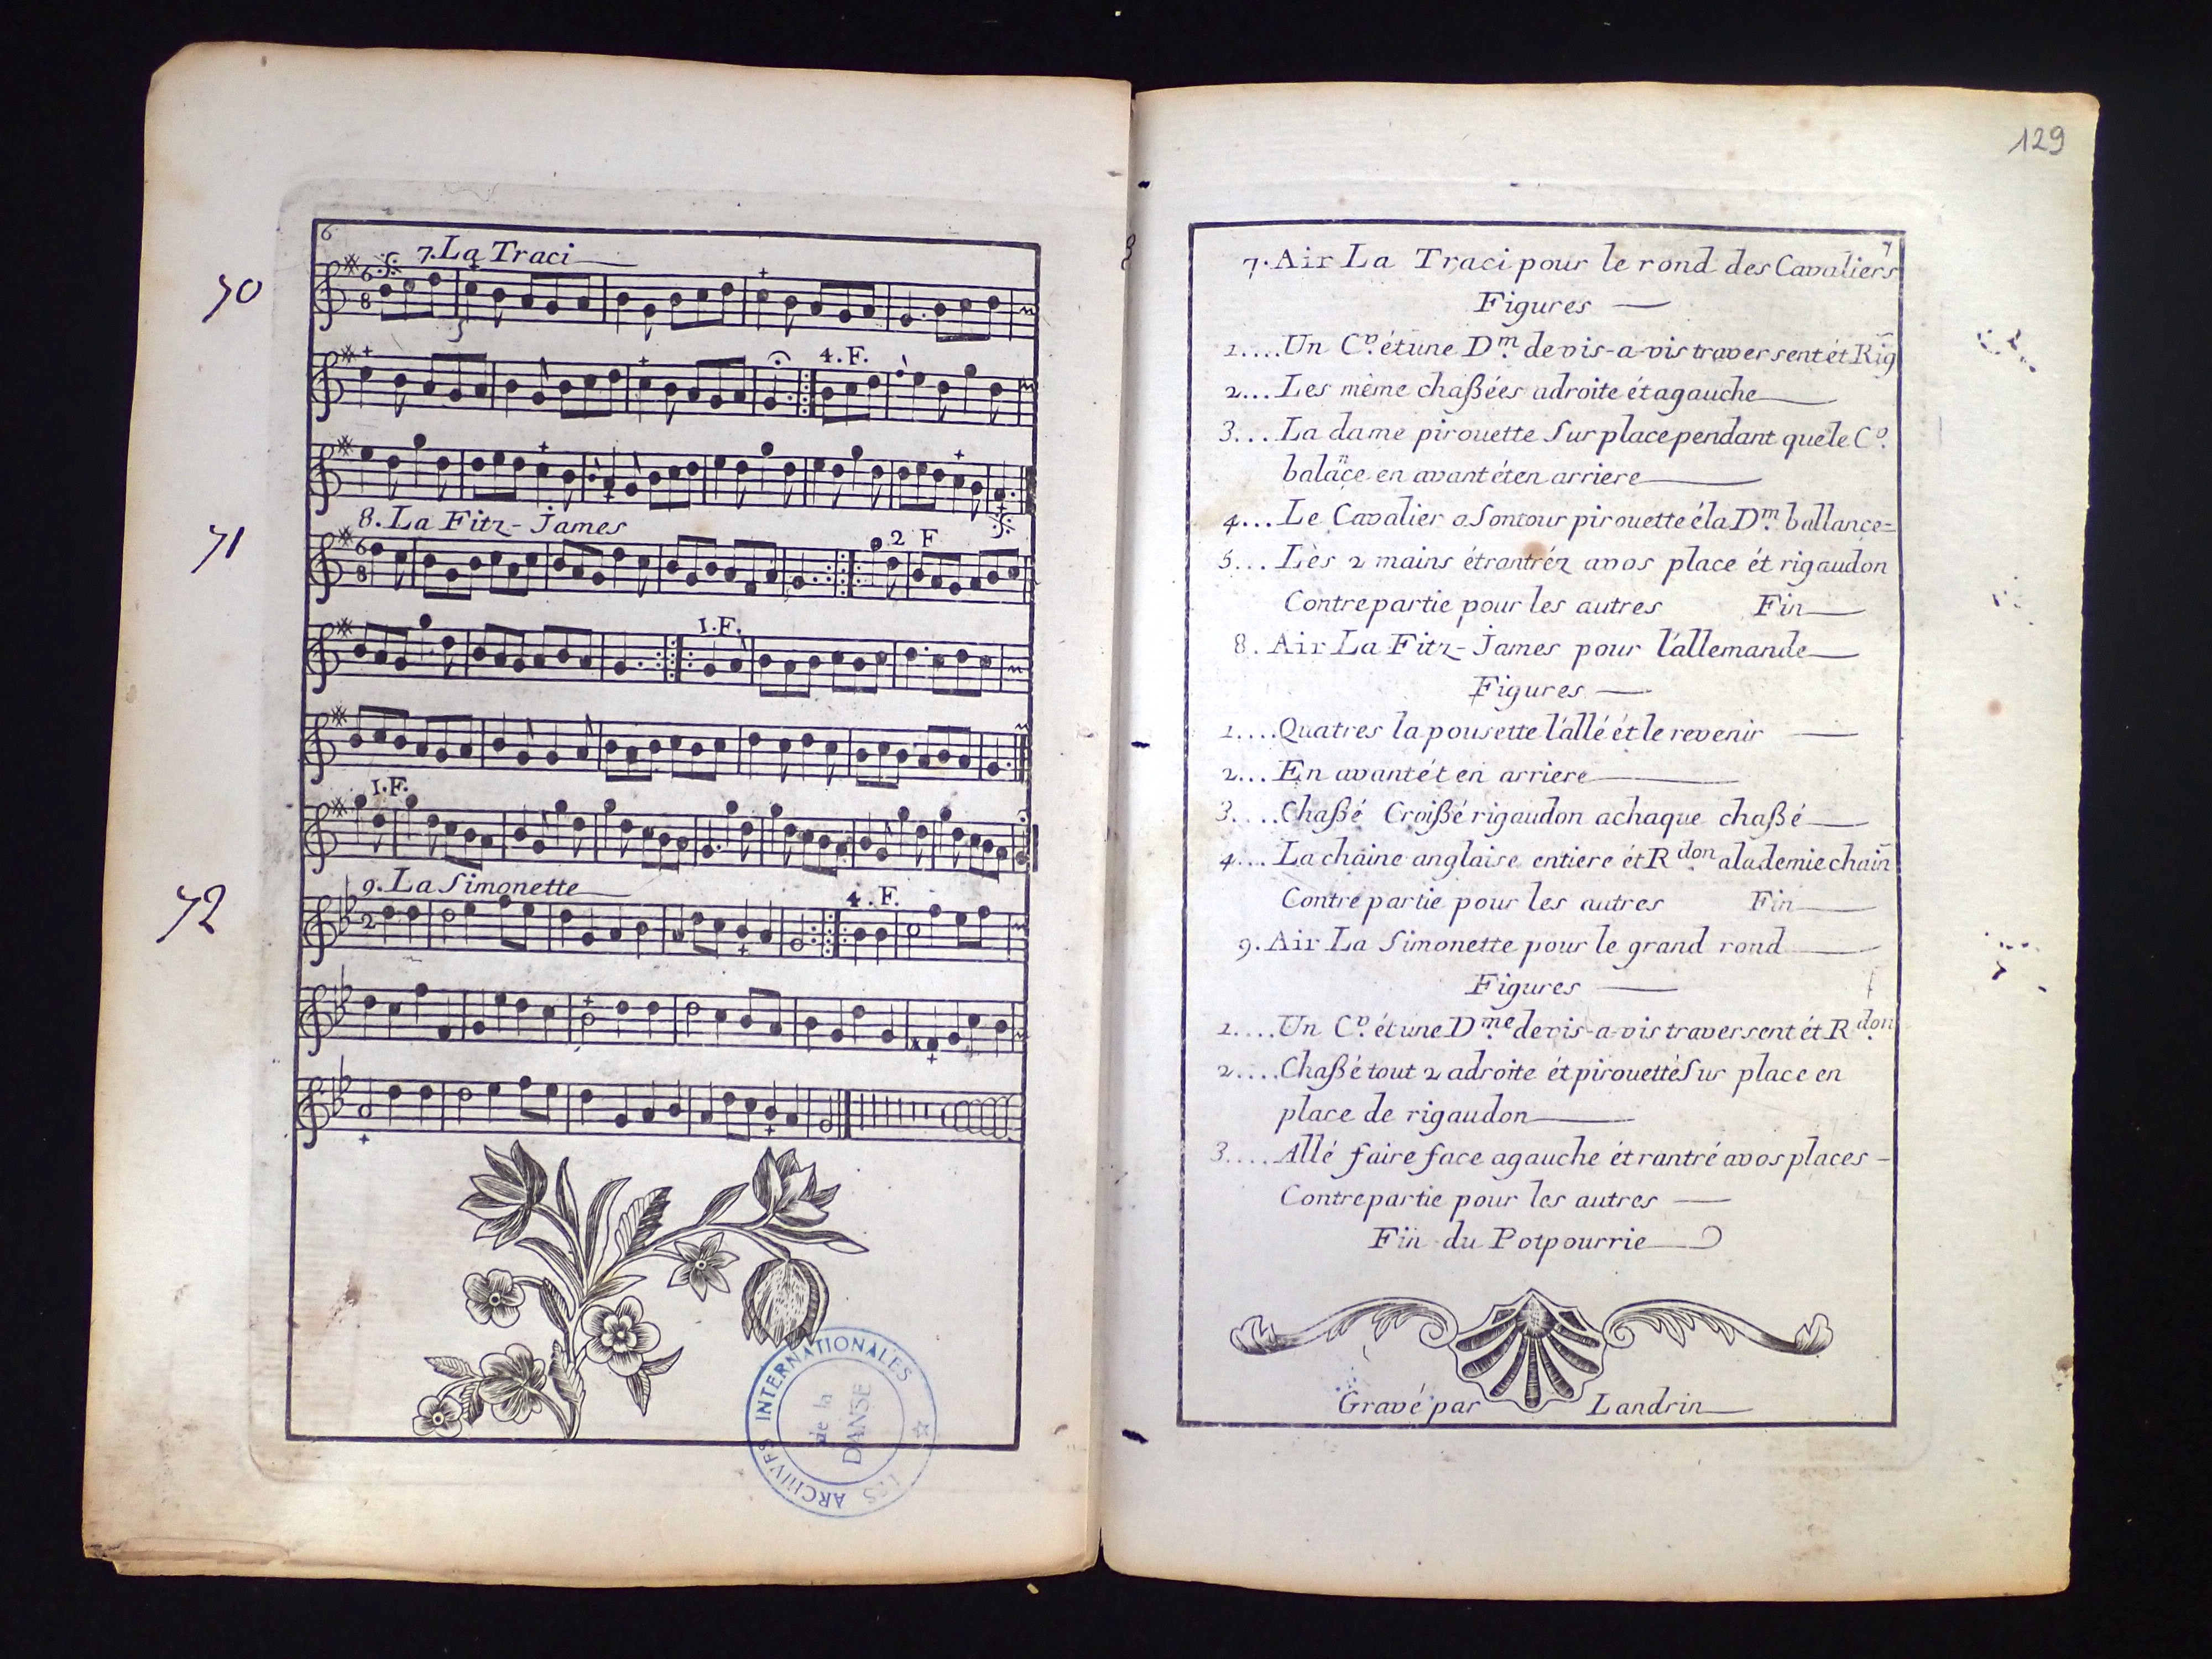 6
7. La Traci
70
6
8
4. F.
8. La Fitz-james
71
6
8
2 F
1. F.
1. F.
9. La Simonette
72
2
4. F.
LES ARCHIVES INTERNATIONALES
de la
DANSE
129
7
7. Air La Traci pour le rond des Cavaliers
Figures
1.... Un Cr. ét une Dm. de vis-a-vis traversent ét Rig̃
2... Les mème chaßées adroite ét agauche
3... La dame pirouette sur place pendant que le Cr.
balañce en avant ét en arriere
4... Le Cavalier a son tour pirouette é la Dm. ballance=
5... Lès 2 mains ét rantréz a vos place ét rigaudon
Contre partie pour les autres Fin
8. Air La Fitz-james pour l'allemande
Figures
1.... Quatres la pousette l'allé ét le revenir
2... En avant ét en arriere
3.... Chaßé Croißé rigaudon a chaque chaßé
4.... La chaine anglaise entiere ét Rdon. a la demie chaiñ
Contre partie pour les autres Fin
9. Air La Simonette pour le grand rond
Figures
1.... Un Cr. ét une Dme. de vis-a-vis traversent ét Rdon.
2.... Chaßé tout 2 adroite ét pirouetté sur place en
place de rigaudon
3.... Allé faire face agauche ét rantré a vos places -
Contre partie pour les autres
Fin du Potpourrie
Gravé par Landrin